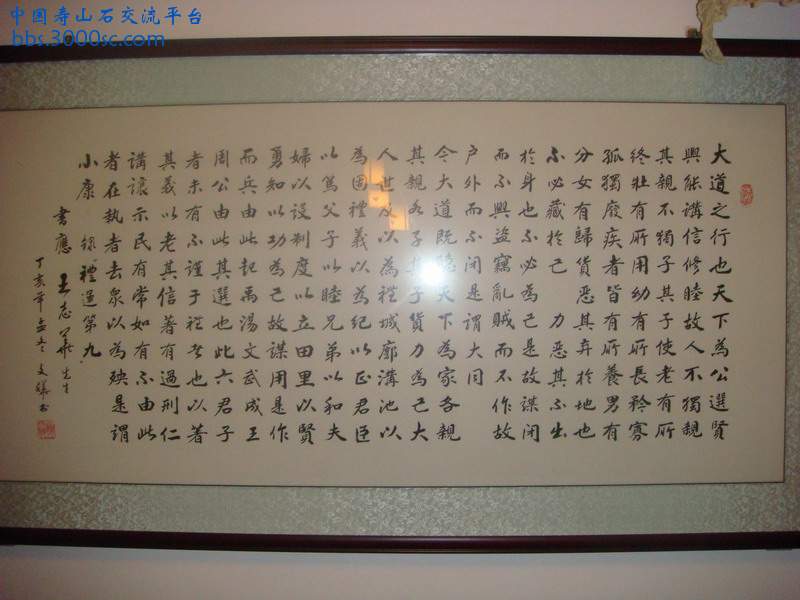 中国寿山石交流平台
bbs.3000sc.com
大道之行也天下為公選賢
與能講信修睦故人不獨親
其親不獨子其子使老有所
終壯有所用幼有所長矜寡
孤獨廢疾者皆有所養男有
分女有歸貨惡其弃於地也
不必藏於己力惡其不出
於身也不必為己是故謀閉
而不興盜竊亂賊而不作故
戶外而不閉是謂大同
今大道既隱天下為家各親
其親各子其子貨力為己大
人世及以為禮城廓溝池以
為固禮義以為紀以正君臣
以篤父子以睦兄弟以和夫
婦以設制度以立田里以賢
勇知以功為己故謀用是作
而兵由此起禹湯文武成王
周公由此其選也此六君子
者未有不謹于禮者也以著
其義以老其信著有過刑仁
講讓示民有常如有不由此
者在執者去眾以為殃是謂
小康 錄禮運第九
書應 王志華先生
丁亥年孟冬文書